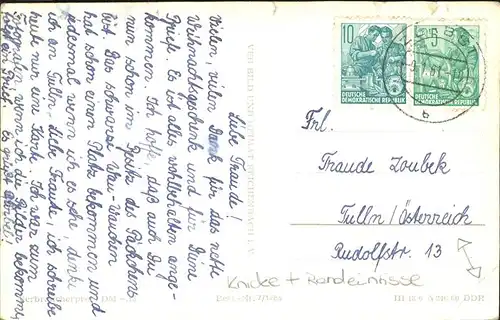 Liebe Traude!
Vielen, vielen Dank für das nette
Weihnachtsgeschenk und für Deine
Briefe. Es ist alles wohlbehalten ange-
kommen. Ich hoffe, daß auch Du
nun schon im Besitz des Päckchens
bist. Das schwarze Wau-Wauchen
hat schon einen Platz bekommen und
jedesmal wenn ich es sehe denke
ich an Tulln. Liebe Traude, ich schreibe
heut nur eine Karte. Ich war zum
Fotografen, wenn ich die Bilder bekomme,
Es grüßt
10
DEUTSCHE
DEMOKRATISCHE REPUBLIK
5
DEUTSCHE
DEMOKRATISCHE REPUBLIK
b
Frl.
Traude Zoubek
Tulln/Österreich
Rudolfstr. 13
Knicke + Randeinrisse
Verbraucherpreis DM
DDR